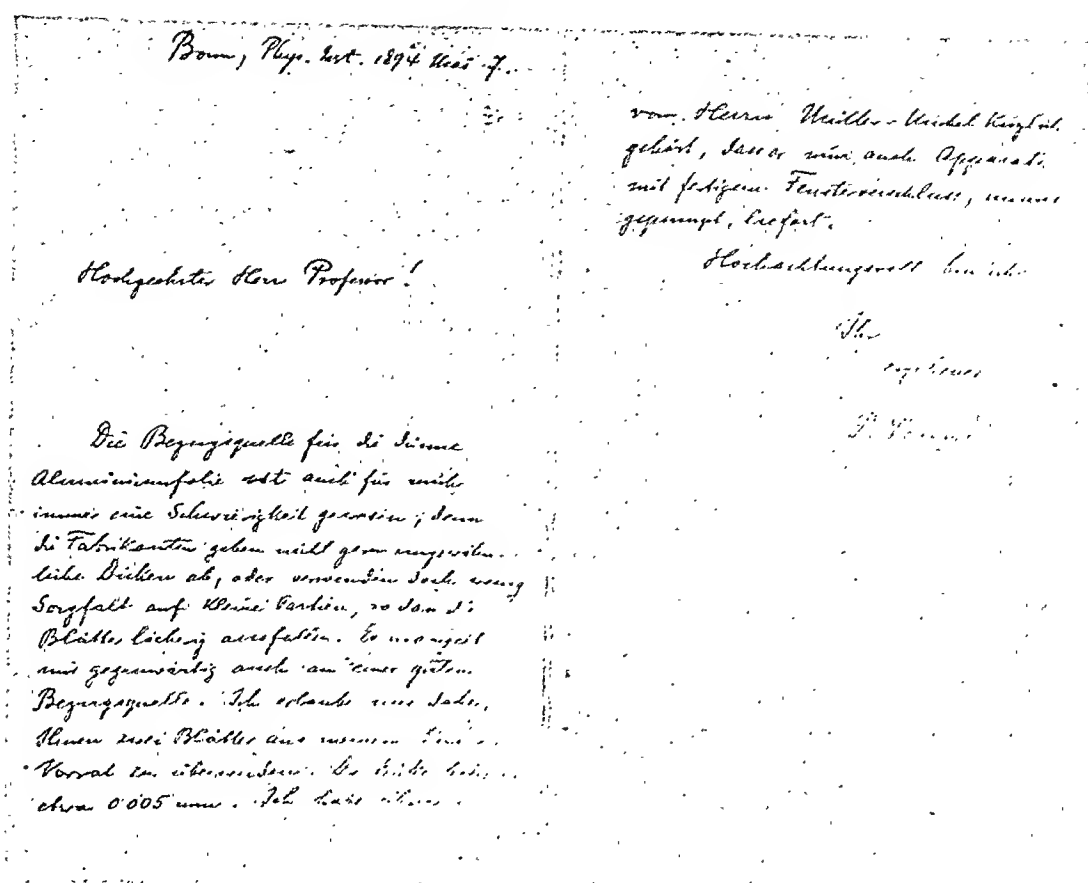 Bonn, Phys. Inst. 1894 Mai 7.
Hochgeehrter Herr Professor!
Die Bezugsquelle für die dünne
Aluminiumfolie ist auch für mich
immer eine Schwierigkeit gewesen; denn
die Fabrikanten geben nicht gern ungewöhn-
liche Dicken ab, oder verwenden doch wenig
Sorgfalt auf kleine Partien, so dass die
Blätter löcherig ausfallen. Es mangelt
mir gegenwärtig auch an einer guten
Bezugsquelle. Ich erlaube mir daher,
Ihnen zwei Blätter aus meinem
Vorrat zu übersenden. Die Dicke
etwa 0.005 mm. Ich habe
von Herrn Müller-Unkel
gehört, dass er nun auch Apparate
mit fertigem Fensterverschluss,
gepumpt, liefert.
Hochachtungsvoll bin ich
Ihr
ergebener
P. Lenard